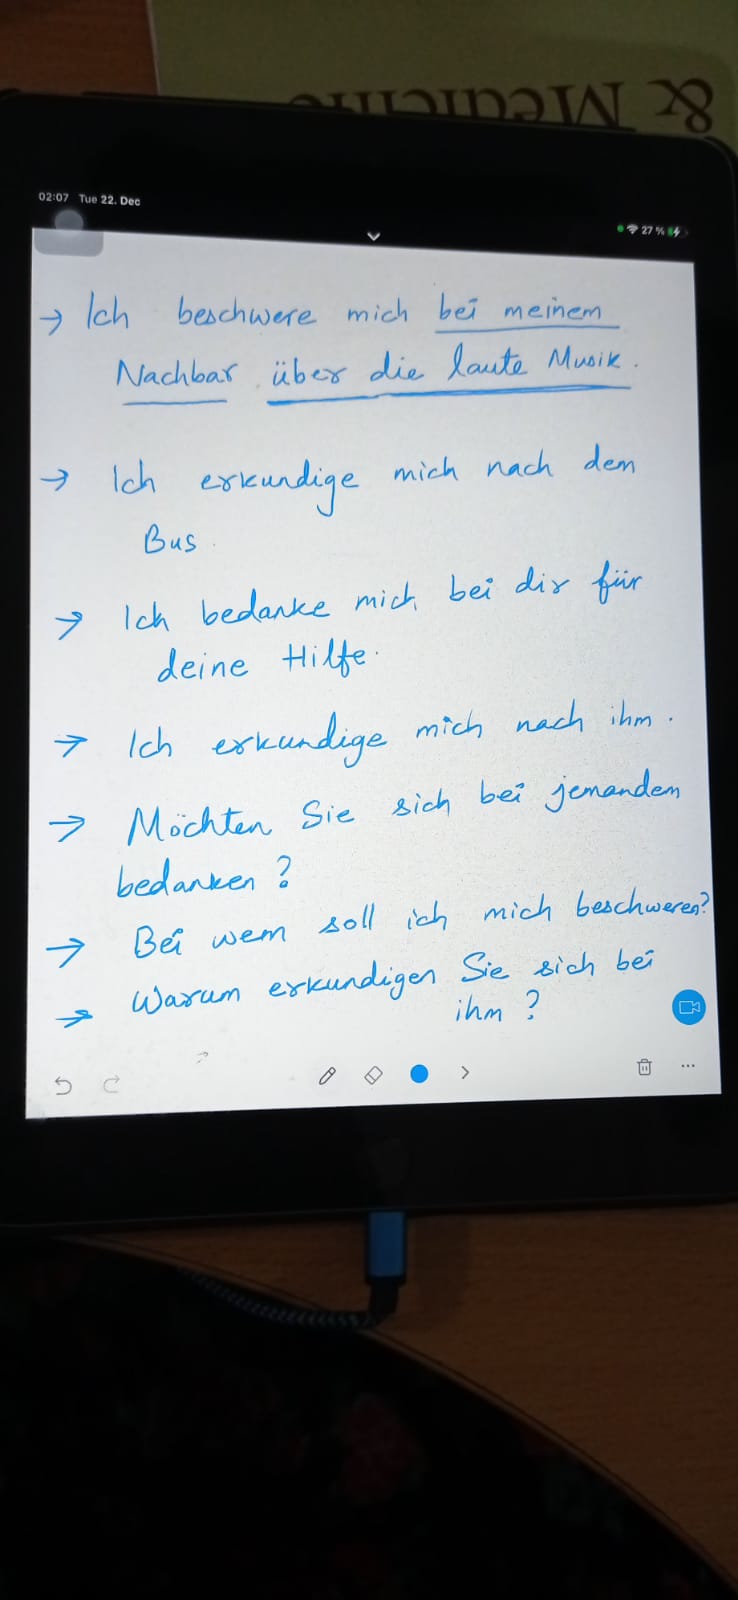 & Medicine
02:07 Tue 22. Dec
27 %
→ Ich beschwere mich bei meinem
Nachbar über die laute Musik.
→ Ich erkundige mich nach dem
Bus.
→ Ich bedanke mich bei dir für
deine Hilfe.
→ Ich erkundige mich nach ihm.
→ Möchten Sie sich bei jemandem
bedanken?
→ Bei wem soll ich mich beschweren?
→ Warum erkundigen Sie sich bei
ihm?